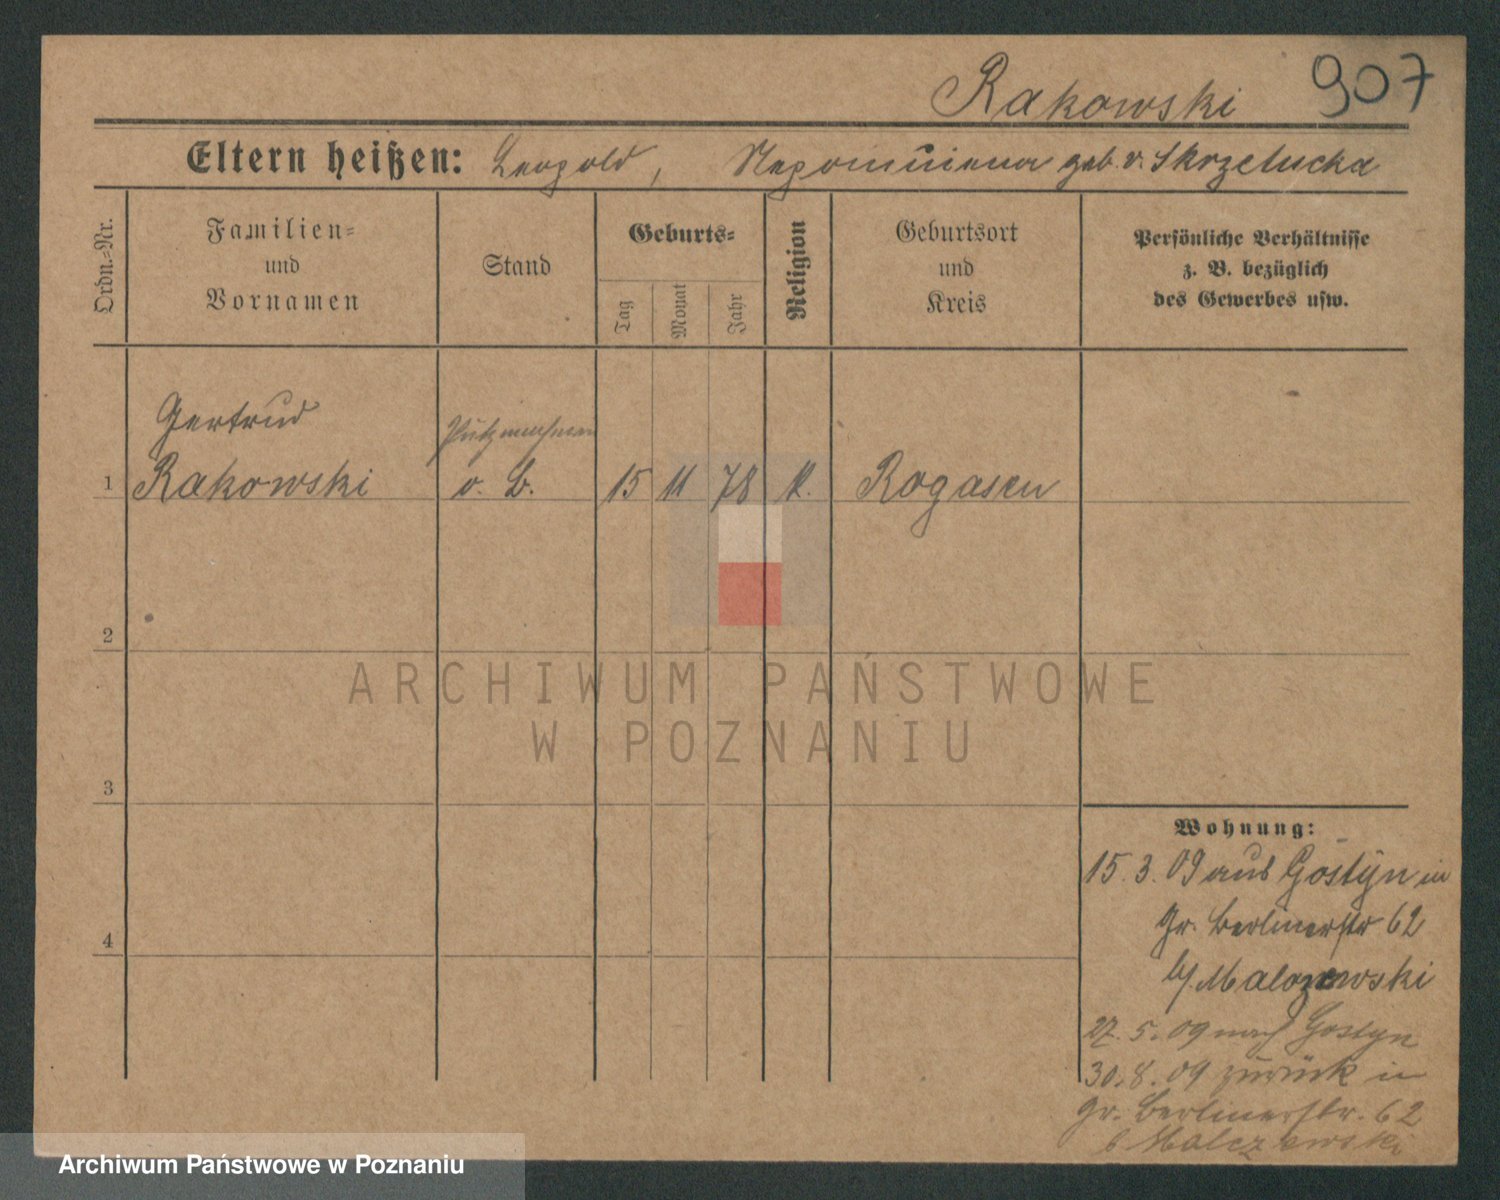 Rakowski 907
Eltern heißen: Leopold, Nepomucena geb. v. Skrzetucka
Ordn.-Nr.
Familien-
und
Vornamen
Stand
Geburts-
Tag
Monat
Jahr
Religion
Geburtsort
und
Kreis
Persönliche Verhältnisse
z. B. bezüglich
des Gewerbes usw.
Gertrud
1 Rakowski
o. B. 15 11 78 k. Rogasen
2
3
4
Wohnung:
15.3.09 aus Gostyn in
Gr. Berlinerstr 62
b/ Malczewski
27.5.09 nach Gostyn
30.8.09 zurück in
Gr. Berlinerstr. 62
b Malczewski
ARCHIWUM PAŃSTWOWE
W POZNANIU
Archiwum Państwowe w Poznaniu